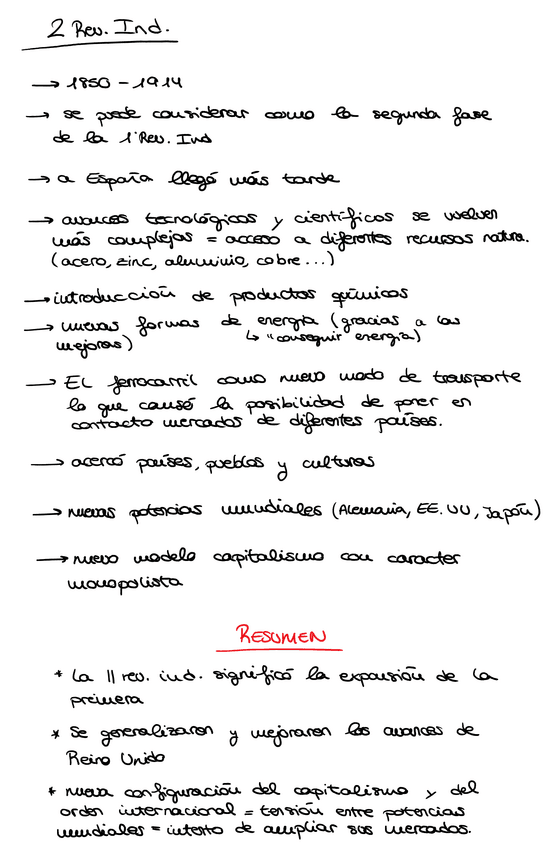 2 Rev. Ind.
→ 1850 - 1914
→ se puede considerar como la segunda fase
de la 1ª Rev. Ind
→ a España llegó más tarde
→ avances tecnológicos y científicos se vuelven
más complejos = acceso a diferentes recursos natura.
(acero, zinc, aluminio, cobre...)
→ introducción de productos químicos
→ nuevas formas de energía (gracias a las
mejoras) ↳ "conseguir" energía)
→ EL ferrocarril como nuevo modo de transporte
lo que causó la posibilidad de poner en
contacto mercados de diferentes países.
→ acercó países, pueblos y culturas
→ nuevas potencias mundiales (Alemania, EE.UU, Japón)
→ nuevo modelo capitalismo con caracter
monopolista
RESUMEN
* La II rev. ind. significó la expansión de la
primera
* Se generalizaron y mejoraron los avances de
Reino Unido
* nueva configuración del capitalismo y del
orden internacional = tensión entre potencias
mundiales = intento de ampliar sus mercados.